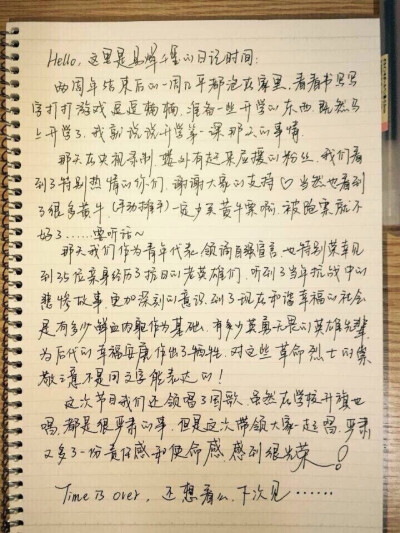 Hello,这里是易烊千玺的日记时间:
两周年结束后的一周几乎都泡在家里,看看书写写
字打打游戏逗逗楠楠,准备一些开学的东西.既然马
上开学了,我就说说开学第一课那天的事情.
那天在央视录制,墙外有起来应援的粉丝,我们看
到了特别热情的你们,谢谢大家的支持♡当然也看到
了很多黄牛(手动推手)一定少买黄牛票啊,被险案就不
好了……要听话~
那天我们作为青年代表,领诵自强宣言,也特别荣幸见
到35位亲身经历了抗日的老英雄们,听到了当年抗战中的
悲惨故事,更加深刻的意识到了现在和谐幸福的社会
是有多少鲜血肉躯作为基础,有多少英勇无畏的英雄先辈,
为后代的幸福安康作出了牺牲,对这些革命烈士的崇
敬之意不是用文字能表达的!
这次节目我们还领唱了国歌,虽然在学校升旗也
唱,都是很严肃的事,但是这次带领大家一起唱,严肃
又多了一份责任感和使命感,感到很光荣!
Time is over,还想看么,下次见……